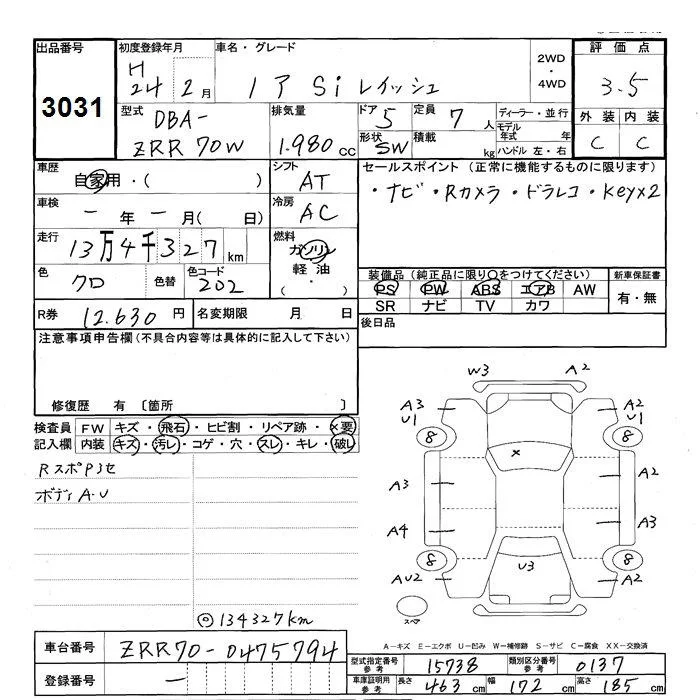 出品番号 初度登録年月 車名・グレード 2WD・4WD 評価点
3031 H 24年 2月 ノア Si レイッシュ 3.5
型式 DBA- ZRR 70W 排気量 1.980 cc ドア 5 定員 7人 ディーラー・並行
形状 SW 積載 kg モデル年式 年 ハンドル 左・右
外装 内装
C C
車歴 自家用・( ) シフト AT セールスポイント (正常に機能するものに限ります)
・ナビ・Rカメラ・ドラレコ・Key×2
車検 ー年ー月(ー日) 冷房 AC
走行 13万4千327km 燃料 ガソリン 軽油 ( ・ )
色 クロ 色替 色コード 202
装備品 (純正品に限り○をつけてください) 新車保証書
PS PW ABS エアB AW 有・無
SR ナビ TV カワ
R券 12.630円 名変期限 月 日 後日品
注意事項申告欄 (不具合内容等は具体的に記入して下さい)
修復歴 有 〔箇所 〕
検査員 FW キズ・飛石・ヒビ割・リペア跡・×要
記入欄 内装 キズ・汚レ・コゲ・穴・スレ・キレ・破レ
RスポPキセ
ボディA・U
◎134327km
W3 A2
A3 A2
U1 U1
8 8
×
A3 A2
A4 A3
8 8
U3
AU2 A2
スペア
A−キズ E−エクボ U−凹み W−補修跡 S−サビ C−腐食 XX−交換済
車台番号 ZRR70-0475794
登録番号 ー
型式指定番号 参考 15738 類別区分番号 参考 0137
車庫証明用 参考 長さ 463cm 幅 172cm 高さ 185cm